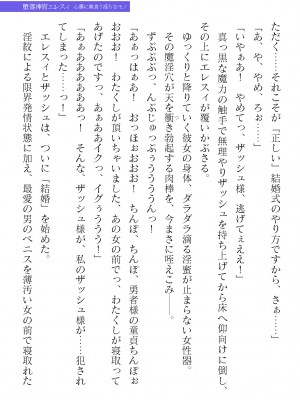 堕落神官エレスィ
ただく……それこそが『正しい』結婚式のやり方ですから、さぁ……」
「あ、や、やめ、ろぉ……」
「いやぁあ！　やめてっ、ザッシュ様、逃げてぇええ！」
真っ黒な魔力の触手で無理やりザッシュを持ち上げてから床へ仰向けに倒し、
その上にエレスィが覆いかぶさる。
ゆっくりと降りていく彼女の身体、ダラダラ滴る淫蜜が止まらない女性器。
その魔淫穴が天を衝き勃起する肉棒を、今まさに咥えこみ――。
ずぶぶぶっ、んぶじゅっぷぅうううんっ！
「あぁっはぁあ！　おっほぉおおお！　ちんぽ、ちんぽ、勇者様の童貞ちんぽぉ
おおお！　わたくしが頂いちゃいました、あの女の前でっ、わたくしが寝取って
あげたのですっ、あぁあイクっ、イグぅううう！」
「あぁああああああっ！　そんな、ザッシュ様が、私のザッシュ様が……犯され
てしまった……っ！」
エレスィとザッシュは、ついに『結婚』を始めた。
淫紋による限界発情状態に加え、最愛の男のペニスを薄汚い女の前で寝取れた